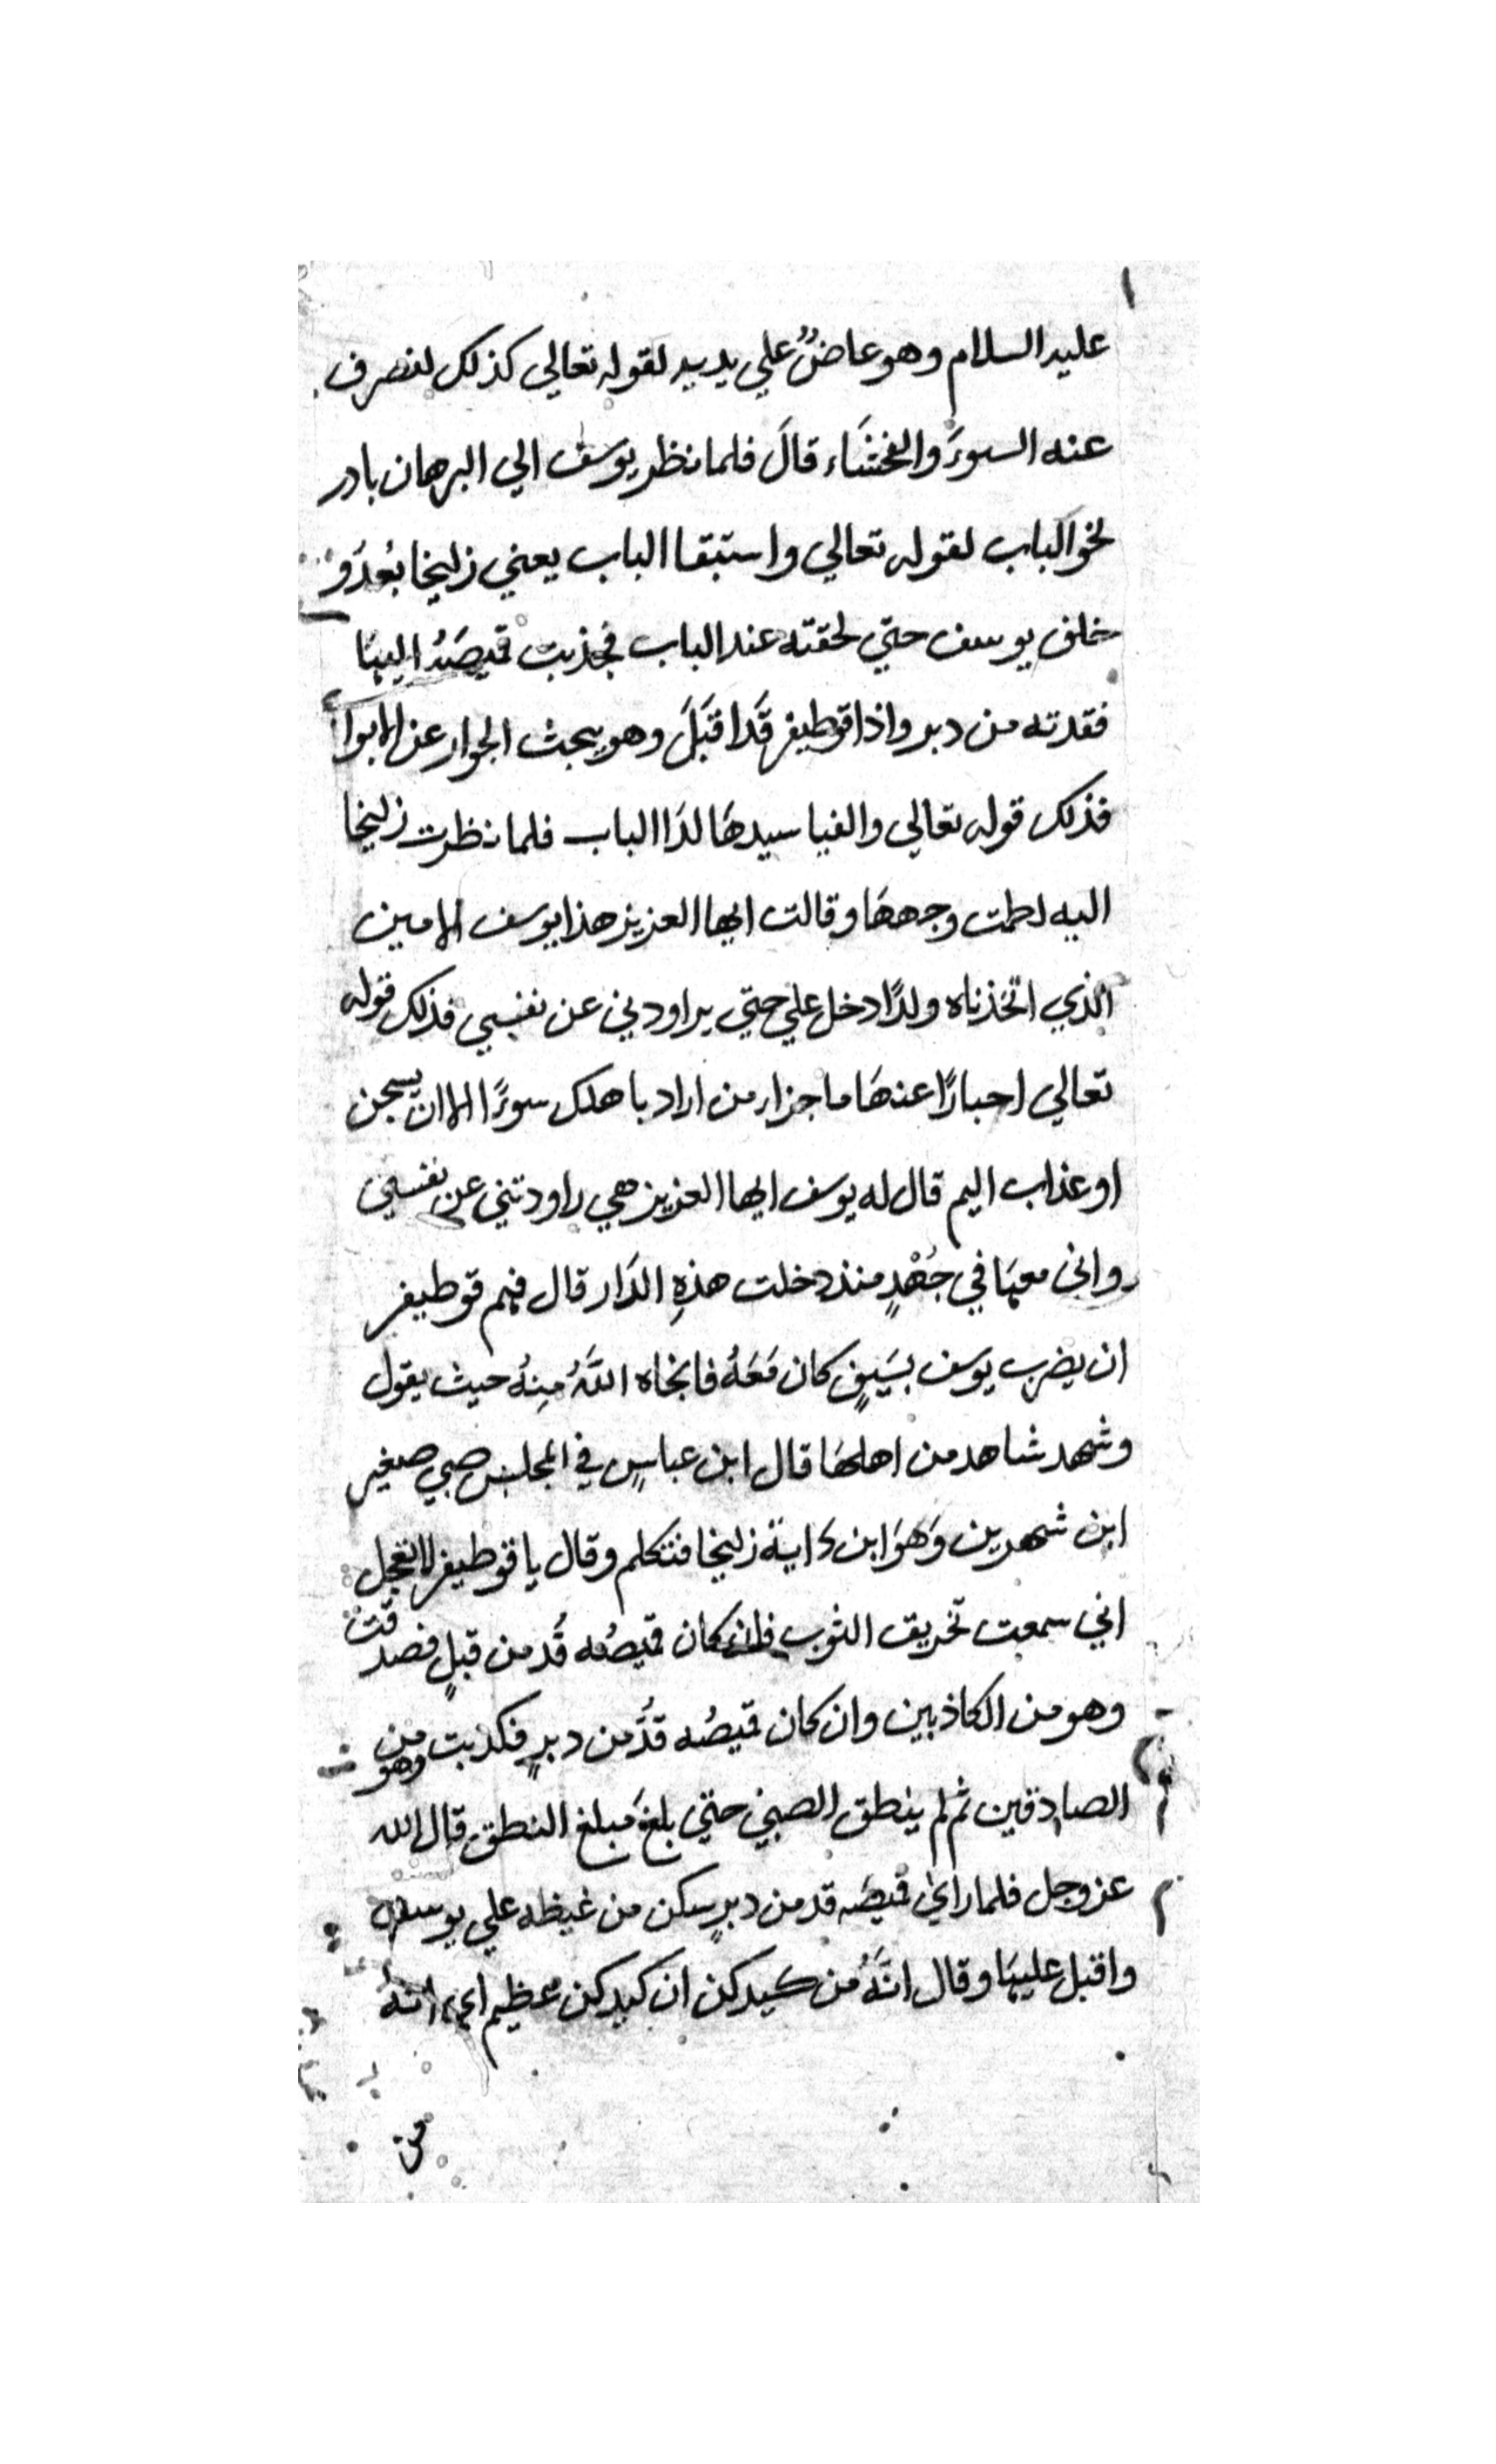 عليه السلام وهو عاضٌ علي يديه لقوله تعالي كذلك لنصرف
عنه السوءَ والفحشَاء قالَ فلما نظر يوسف الي البرهان بادر
نحو الباب لقوله تعالي واستبقا الباب يعني زليخا بعُدوٍ
خلف يوسف حتي لحقته عند الباب فجذبت قميصَهُ اليهَا
فقدته من دبر واذا قوطيفر قَدا قبَلَ وهو يبحث الجوار عن الابوا
فذلك قوله تعالي والفيا سيدهَا لدَا الباب فلما نظرت زليخا
اليه لطمت وجههَا وقالت ايها العزيز هذا يوسف الامين
الذي اتخذناه ولدًا دخل علي حتي يراودني عن نفسي فذلك قوله
تعالي اخبارًا عنهَا ما جزاء من اراد باهلك سوءًا الا ان يسجن
او عذاب اليم قال له يوسف ايها العزيز هي راودتني عن نفسي
واني معهَا في جُهْدٍ منذ دخلت هذهِ الدَار قال فهم قوطيفر
ان يضرب يوسف بسَيفٍ كان مَعَهُ فانجاه اللَّهُ مِنهُ حيث يقول
وشهد شاهد من اهلهَا قال ابن عباسٍ في المجلس صبي صغير
ابن شهرين وَهوَ ابن دَاية زليخا فتكلم وقال يا قوطيفر لا تعجل
اني سمعت تخريق الثوب فان كان قميصُه قُد من قبلٍ فصدقت
وهو من الكاذبين وان كان قميصُه قدُّ من دبرٍ فكذبت وهو من
الصادقين ثم لم ينطق الصبي حتي بلغَ مبلغ النطق قال الله
عز وجل فلما راي قميصَه قد من دبرٍ سكن من غيظه علي يوسف
واقبل عليهَا وقال انَّهُ من كيدكن ان كيدكن عظيم اي انه
من